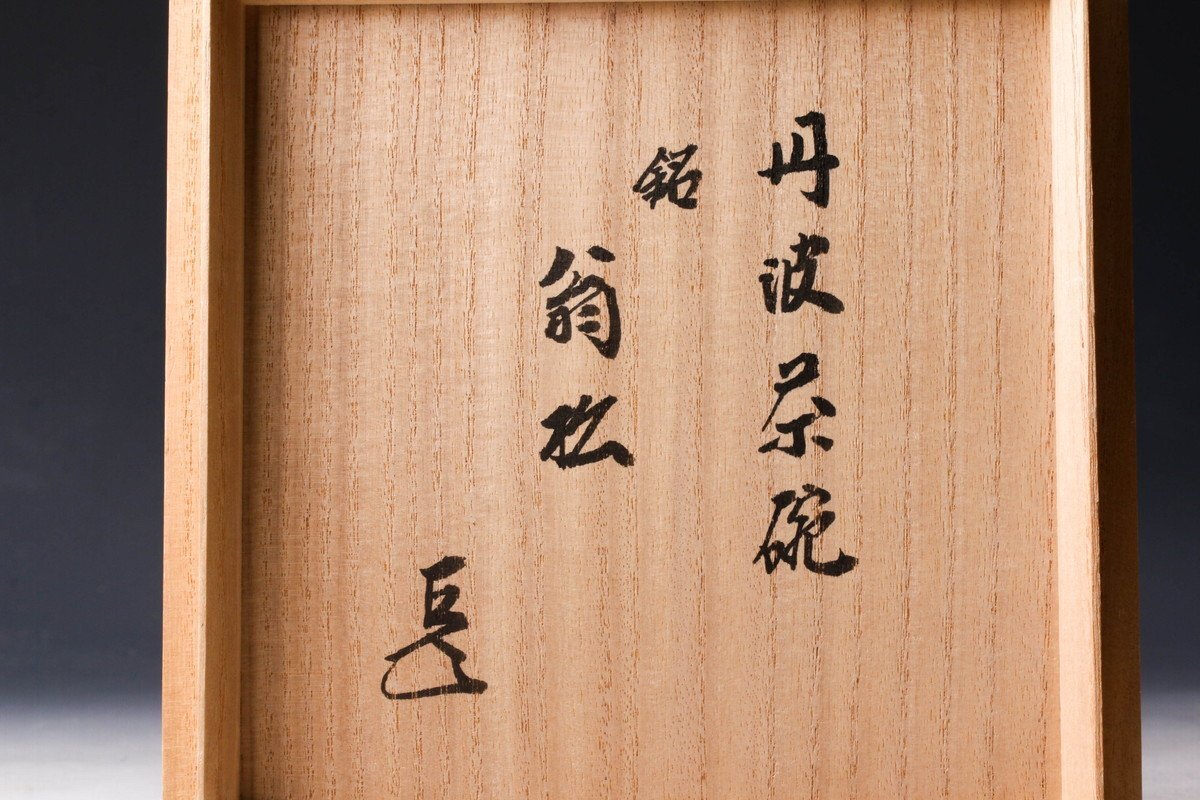 丹波茶碗
銘
翁松